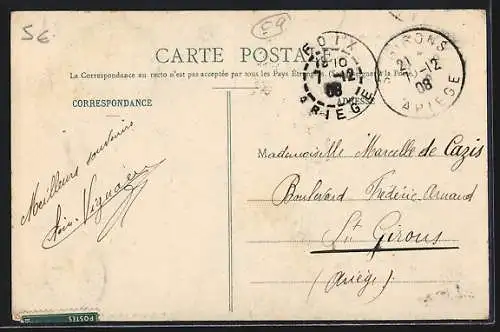 5€
59
CARTE POSTALE
La Correspondance au recto n'est pas acceptée par tous les Pays Étrangers. (Se renseigner à la Poste)
FOIX
18-10
7-12
08
ARIEGE
ST GIRONS
21
12
08
ARIEGE
CORRESPONDANCE
ADRESSE
Meilleurs souvenirs
Mademoiselle Marcelle de Cazis
Boulevard Frédéric-Arnaud
St Girons
(Ariège)
POSTES